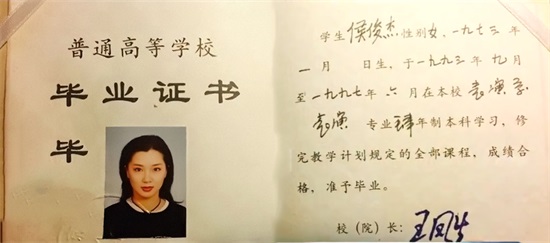 普通高等学校
毕业证书
毕
学生 侯俊杰 性别 女，一九七三年
一月 日生，于一九九三年九月
至一九九七年六月在本校 表演系
表演 专业 肆年制本科学习，修
完教学计划规定的全部课程，成绩合
格，准予毕业。
校（院）长：王凤生